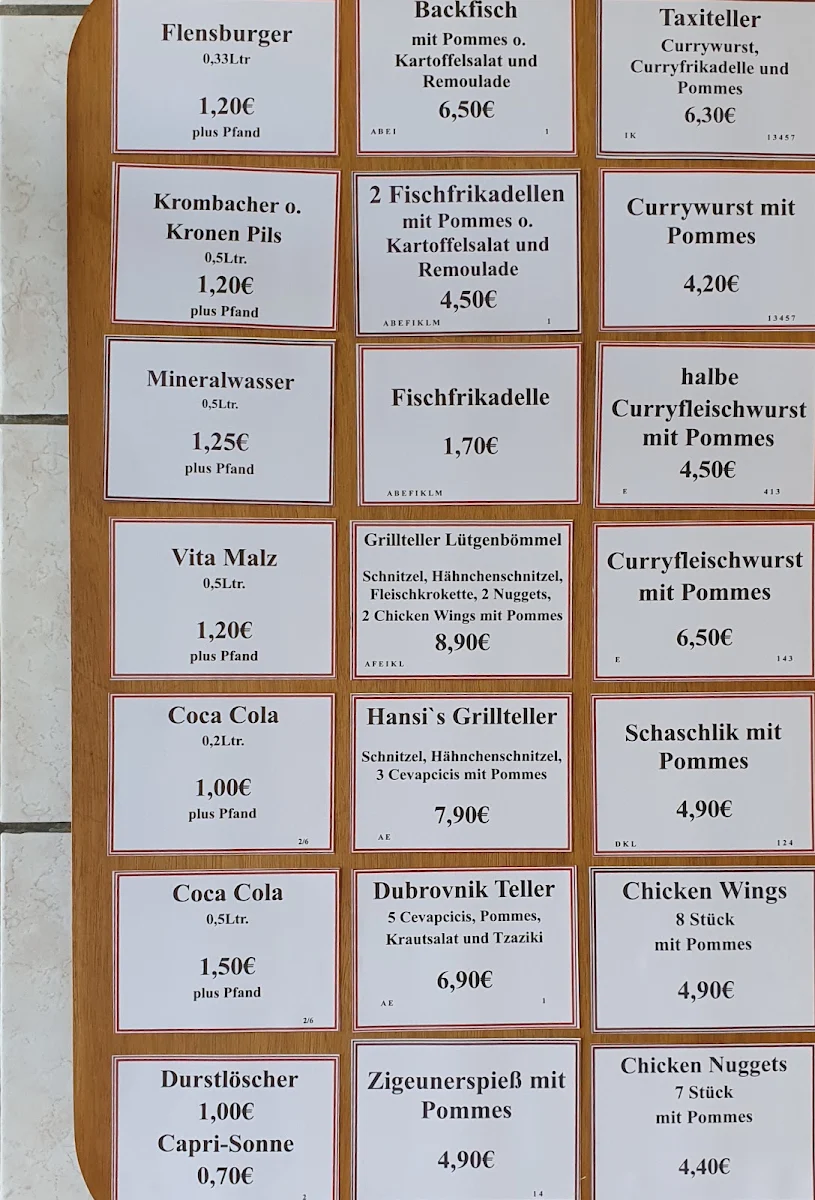 Flensburger
0,33Ltr
1,20€
plus Pfand
Krombacher o.
Kronen Pils
0,5Ltr.
1,20€
plus Pfand
Mineralwasser
0,5Ltr.
1,25€
plus Pfand
Vita Malz
0,5Ltr.
1,20€
plus Pfand
Coca Cola
0,2Ltr.
1,00€
plus Pfand
2/6
Coca Cola
0,5Ltr.
1,50€
plus Pfand
2/6
Durstlöscher
1,00€
Capri-Sonne
0,70€
2
Backfisch
mit Pommes o.
Kartoffelsalat und
Remoulade
6,50€
A B E I 1
2 Fischfrikadellen
mit Pommes o.
Kartoffelsalat und
Remoulade
4,50€
A B E F I K L M 1
Fischfrikadelle
1,70€
A B E F I K L M
Grillteller Lütgenbömmel
Schnitzel, Hähnchenschnitzel,
Fleischkrokette, 2 Nuggets,
2 Chicken Wings mit Pommes
8,90€
A F E I K L
Hansi`s Grillteller
Schnitzel, Hähnchenschnitzel,
3 Cevapcicis mit Pommes
7,90€
A E
Dubrovnik Teller
5 Cevapcicis, Pommes,
Krautsalat und Tzaziki
6,90€
A E 1
Zigeunerspieß mit
Pommes
4,90€
1 4
Taxiteller
Currywurst,
Curryfrikadelle und
Pommes
6,30€
I K 1 3 4 5 7
Currywurst mit
Pommes
4,20€
1 3 4 5 7
halbe
Curryfleischwurst
mit Pommes
4,50€
E 4 1 3
Curryfleischwurst
mit Pommes
6,50€
E 1 4 3
Schaschlik mit
Pommes
4,90€
D K L 1 2 4
Chicken Wings
8 Stück
mit Pommes
4,90€
Chicken Nuggets
7 Stück
mit Pommes
4,40€